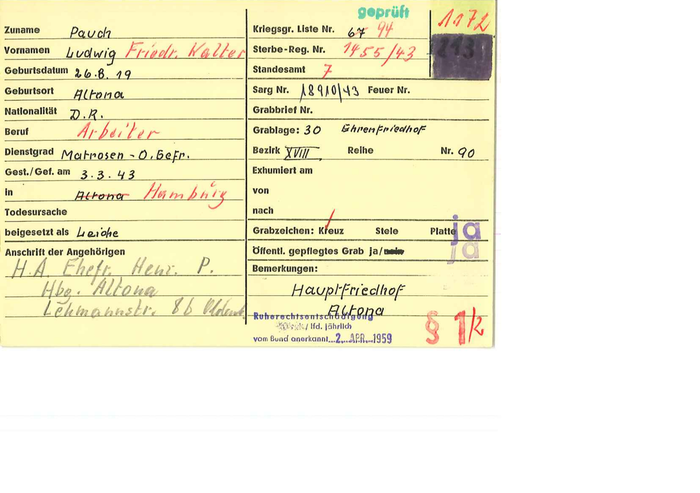 geprüft
1172
Zuname Pauch
Vornamen Ludwig Friedr. Walter
Geburtsdatum 26.8.19
Geburtsort Altona
Nationalität D.R.
Beruf Arbeiter
Dienstgrad Matrosen-O.Gefr.
Gest./Gef. am 3.3.43
in Altona Hamburg
Todesursache
beigesetzt als Leiche
Anschrift der Angehörigen
H.A. Ehefr. Henr. P.
Hbg. Altona
Lehmannstr. 8b
Kriegsgr. Liste Nr. 67 94
Sterbe-Reg. Nr. 1455/43
Standesamt 7
Sarg Nr. 18910/43 Feuer Nr.
Grabbrief Nr.
Grablage: 30 Ehrenfriedhof
Bezirk XVIII Reihe Nr. 90
Exhumiert am
von
nach
Grabzeichen: Kreuz Stele Platte ja
Öffentl. gepflegtes Grab ja/nein ja
Bemerkungen:
Hauptfriedhof
Altona
Ruherechtsentschädigung
/ lfd. jährlich
vom Bund anerkannt 2. APR. 1959
§ 1/2